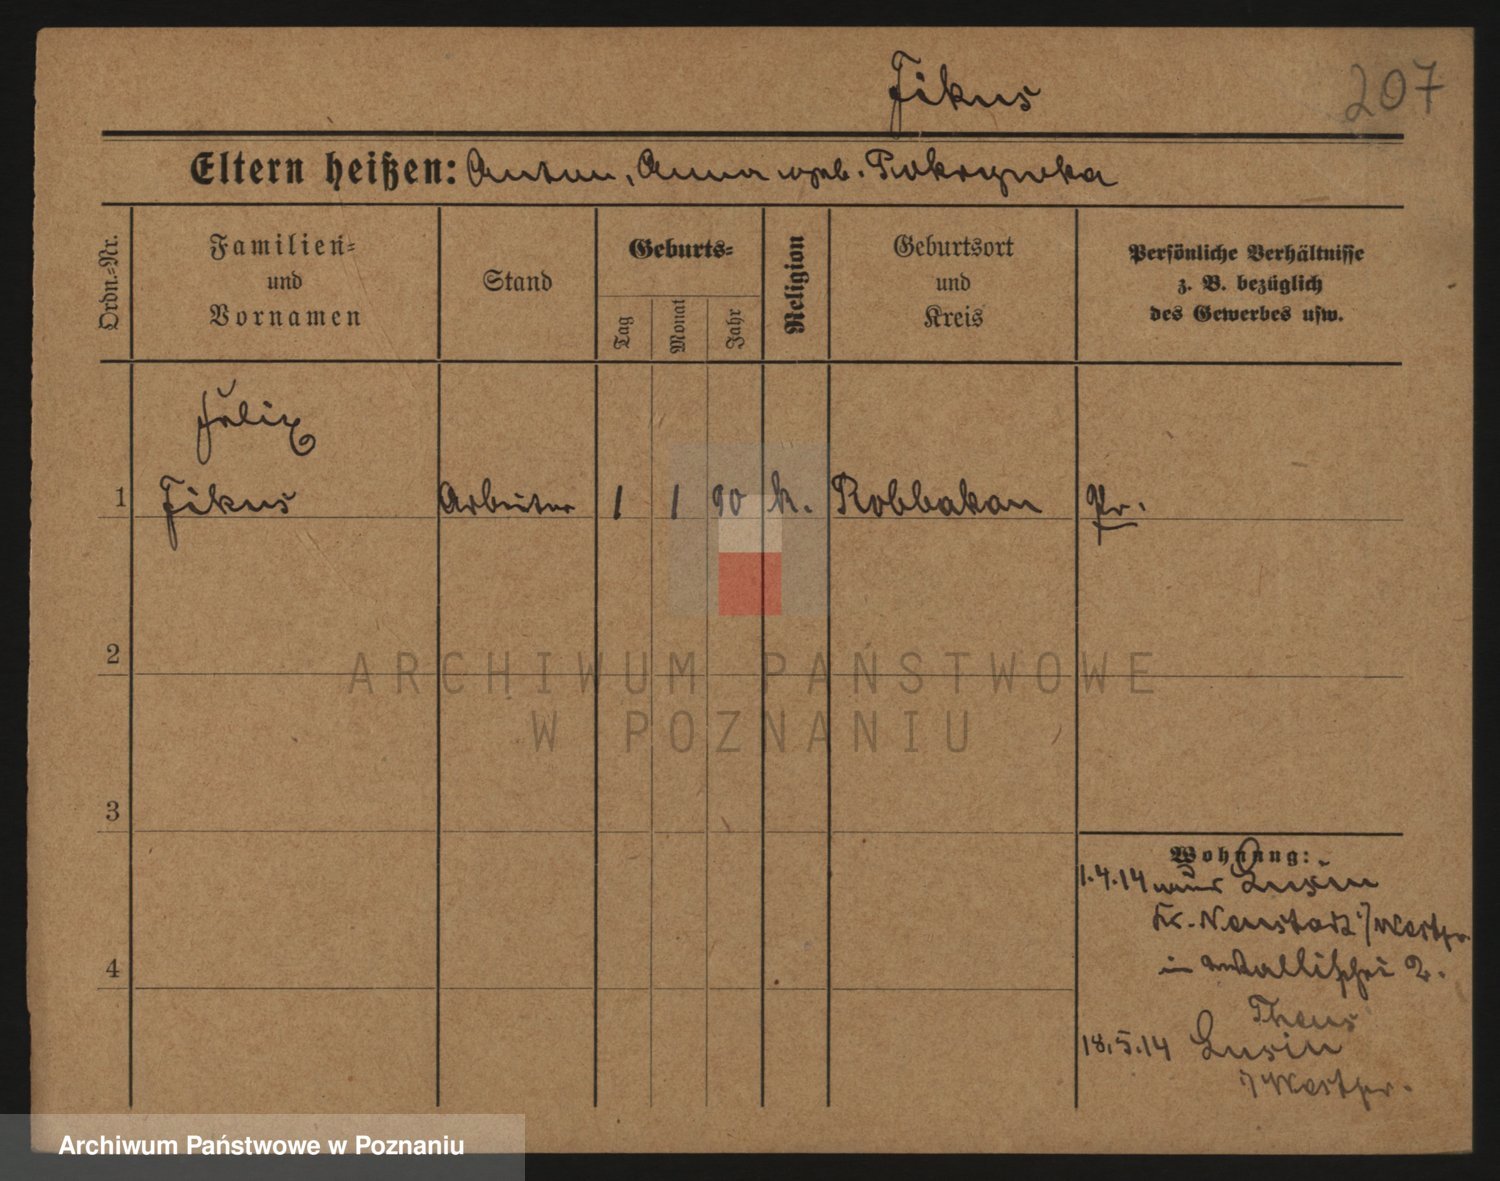 Fikus
207
Eltern heißen: Anton, Anna geb. Pokrzywka
Ordn.-Nr.
Familien-
und
Vornamen
Stand
Geburts-
Tag
Monat
Jahr
Religion
Geburtsort
und
Kreis
Persönliche Verhältnisse
z. B. bezüglich
des Gewerbes usw.
Felix
1 Fikus Arbeiter 1 1 90 k. Robbakau Pr.
2
3
4
Wohnung:
1.4.14 aus Lusin
Kr. Neustadt i/Westpr.
in Wallischei 2.
18.5.14 Lusin
i/Westpr.
ARCHIWUM PAŃSTWOWE
W POZNANIU
Archiwum Państwowe w Poznaniu